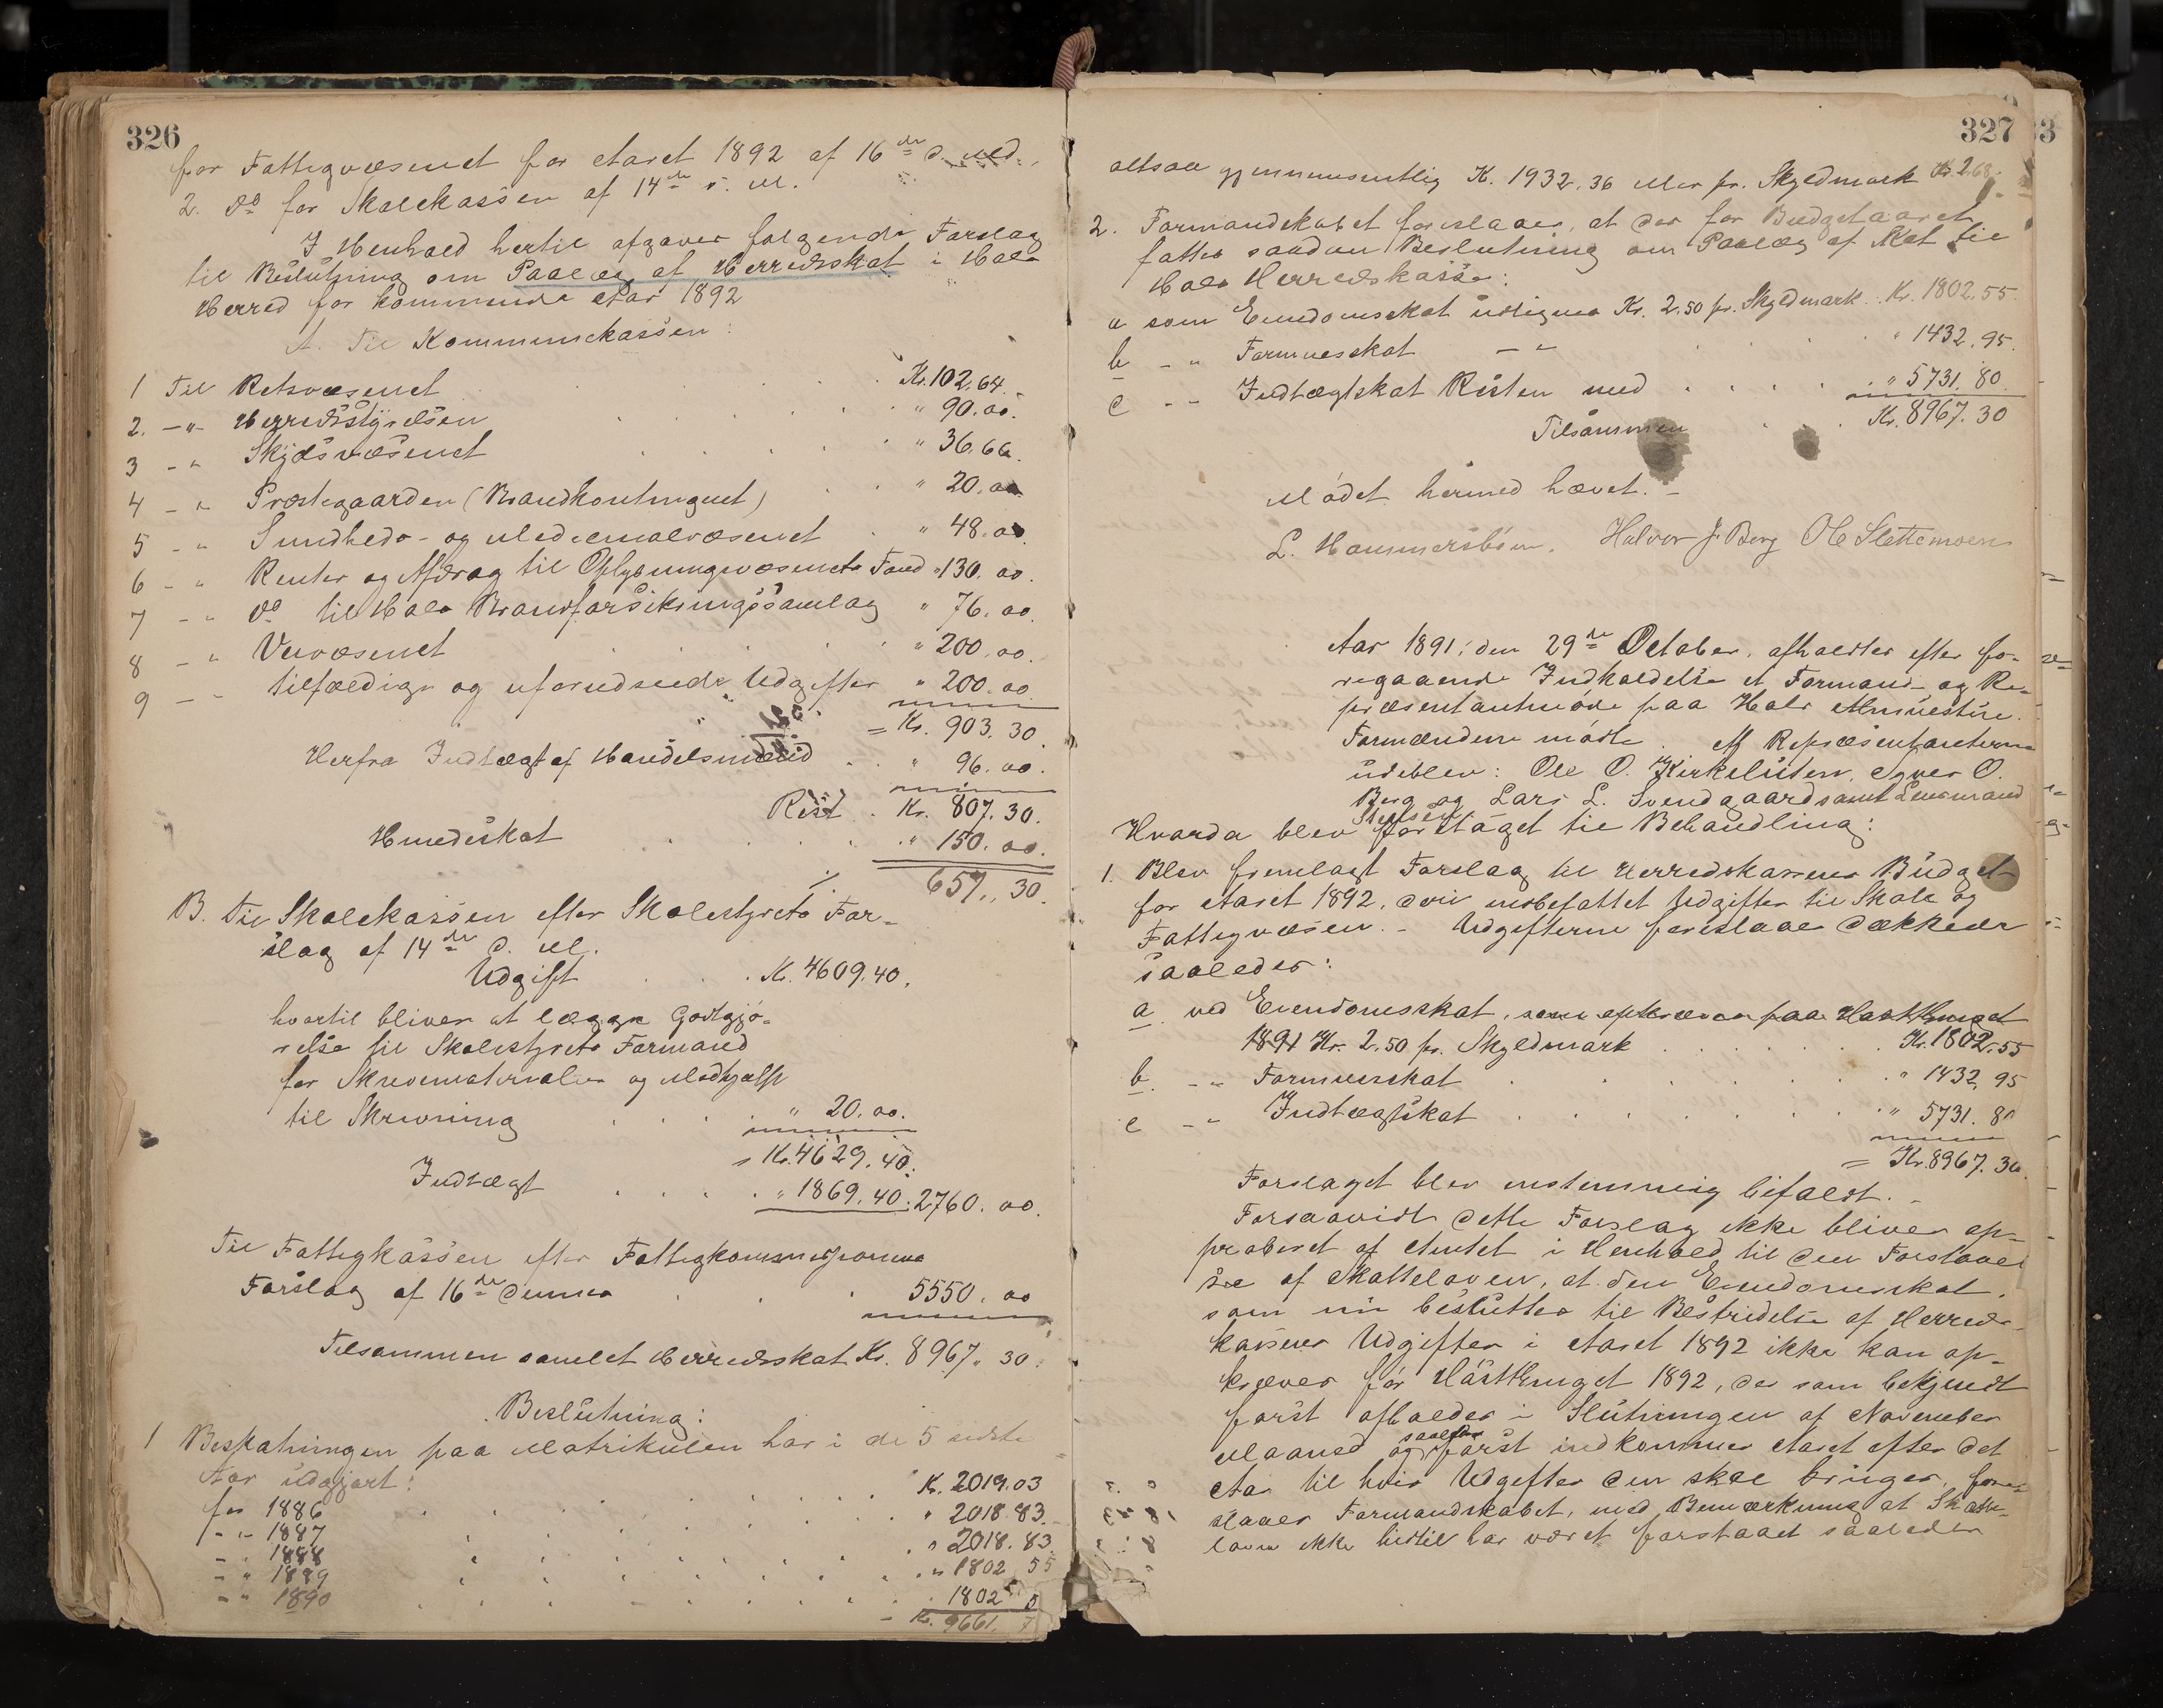 326
for Fattigvæsenet for Aaret 1892 af 16de d. Md.,
2. do for Skolekassen af 14de d. M.
I Henhold hertil afgaves følgende Forslag
til Beslutning om Paalæg af Herredsskat i Hals
Herred for kommende Aar 1892
A. Til Kommunekassen:
1 Til Retsvæsenet Kr. 102.64.
2. -"- Herredsstyrelsen " 90.00.
3 -"- Skjdsvæsenet " 36.66.
4 -"- Præstegaarden (Brandkontingent) " 20.00
5 -"- Sundheds- og Medicinalvæsenet " 48.00
6 -"- Renter og Afdrag til Oplysningsvæsenets Fond " 130.00.
7 -"- do til Hals Brandforsikringssamlag " 76.00.
8 -"- Veivæsenet " 200.00.
9 - tilfældige og uforudseede Udgifter " 200.00
= Kr. 903.30.
Herfra Indtægt af Handelsmænd " 96.00.
Rest Kr. 807.30.
Hundeskat " 150.00.
% 657.,30.
B. Til Skolekassen efter Skolestyrets For-
slag af 14de d. M.
Udgift Kr. 4609.40.
hvortil bliver at lægge Godtgjø-
relse til Skolestyrets Formand
for Skrivematerialier og Medhjælp
til Skrivning " 20.00.
= Kr. 4629.40.
Indtægt " 1869.40. 2760.00.
Til Fattigkassen efter Fattigkommissionens
Forslag af 16de dennes 5550.00
Tilsammen samlet Herredsskat Kr. 8967.30.
Beslutning:
1 Beskatningen paa Matrikulen har i de 5 sidste
Aar udgjort:
for 1886 K. 2019.03
- " - 1887 " 2018.83.
- " 1888 " 2018.83.
- " 1889 " 1802,55
- " 1890 1802 5
= Kr. 9661. 7
327
altsaa gjennemsnitlig K. 1932.36 eller pr. Skyldmark Kr. 2,68.
2. Formandskabet foreslaaes, at der for Budgetaaret
fattes saadan Beslutning om Paalæg af Skat til
Hals Herredskasse:
a som Eiendomsskat udlignes Kr. 2.50 pr. Skyldmark Kr. 1802.55
b - " Formuesskat - " - " 1432.95.
c - - Indtægtskat Resten med " 5731.80.
Tilsammen Kr. 8967.30
Mødet hermed hævet. -
L. Hammersbøen. Halvor J. Berg Ole Slettemoen
Aar 1891, den 29de October, afholdtes efter fo-
regaaende Indkaldelse et Formand- og Re-
præsentantmøde paa Hals Almuestue.
Formændene mødte. Af Repræsentanterne
udeblev: Ole O. Kirkeluten, Syver O.
Berg og Lars L. Svendgaard samt Lensmand
Steensen
Hvorda blev foretaget til Behandling:
1. Blev fremlagt Forslag til Herredskassens Budget
for Aaret 1892, deri indbefattet Udgifter til Skole og
Fattigvæsen. - Udgifterne foreslaaes dækkede
saaledes:
a ved Eiendomsskat, som opkræves paa Høstthinget
1891 Kr. 2.50 pr. Skyldmark Kr. 1802.55
b. - " Formuesskat " 1432,95
c - " Indtægtskat " 5731.80
= Kr. 8967.30.
Forslaget blev enstemmig bifaldt. -
Forsaavidt dette Forslag ikke bliver ap-
proberet af Amtet i Henhold til den Forstaael
se af Skatteloven, at den Eiendomsskat,
som nu besluttes til Bestridelse af Herreds-
kassens Udgifter i Aaret 1892 ikke kan op-
kræves før Høstthinget 1892, der som bekjendt
først afholdes i Slutningen af November
Maaned og saaledes først indkommer Aaret efter det
Aar til hvis Udgifter den skal bringes, fore-
slaaes Formandskabet, med Bemærkning at Skatte-
loven ikke hidtil har været forstaaet saaledes